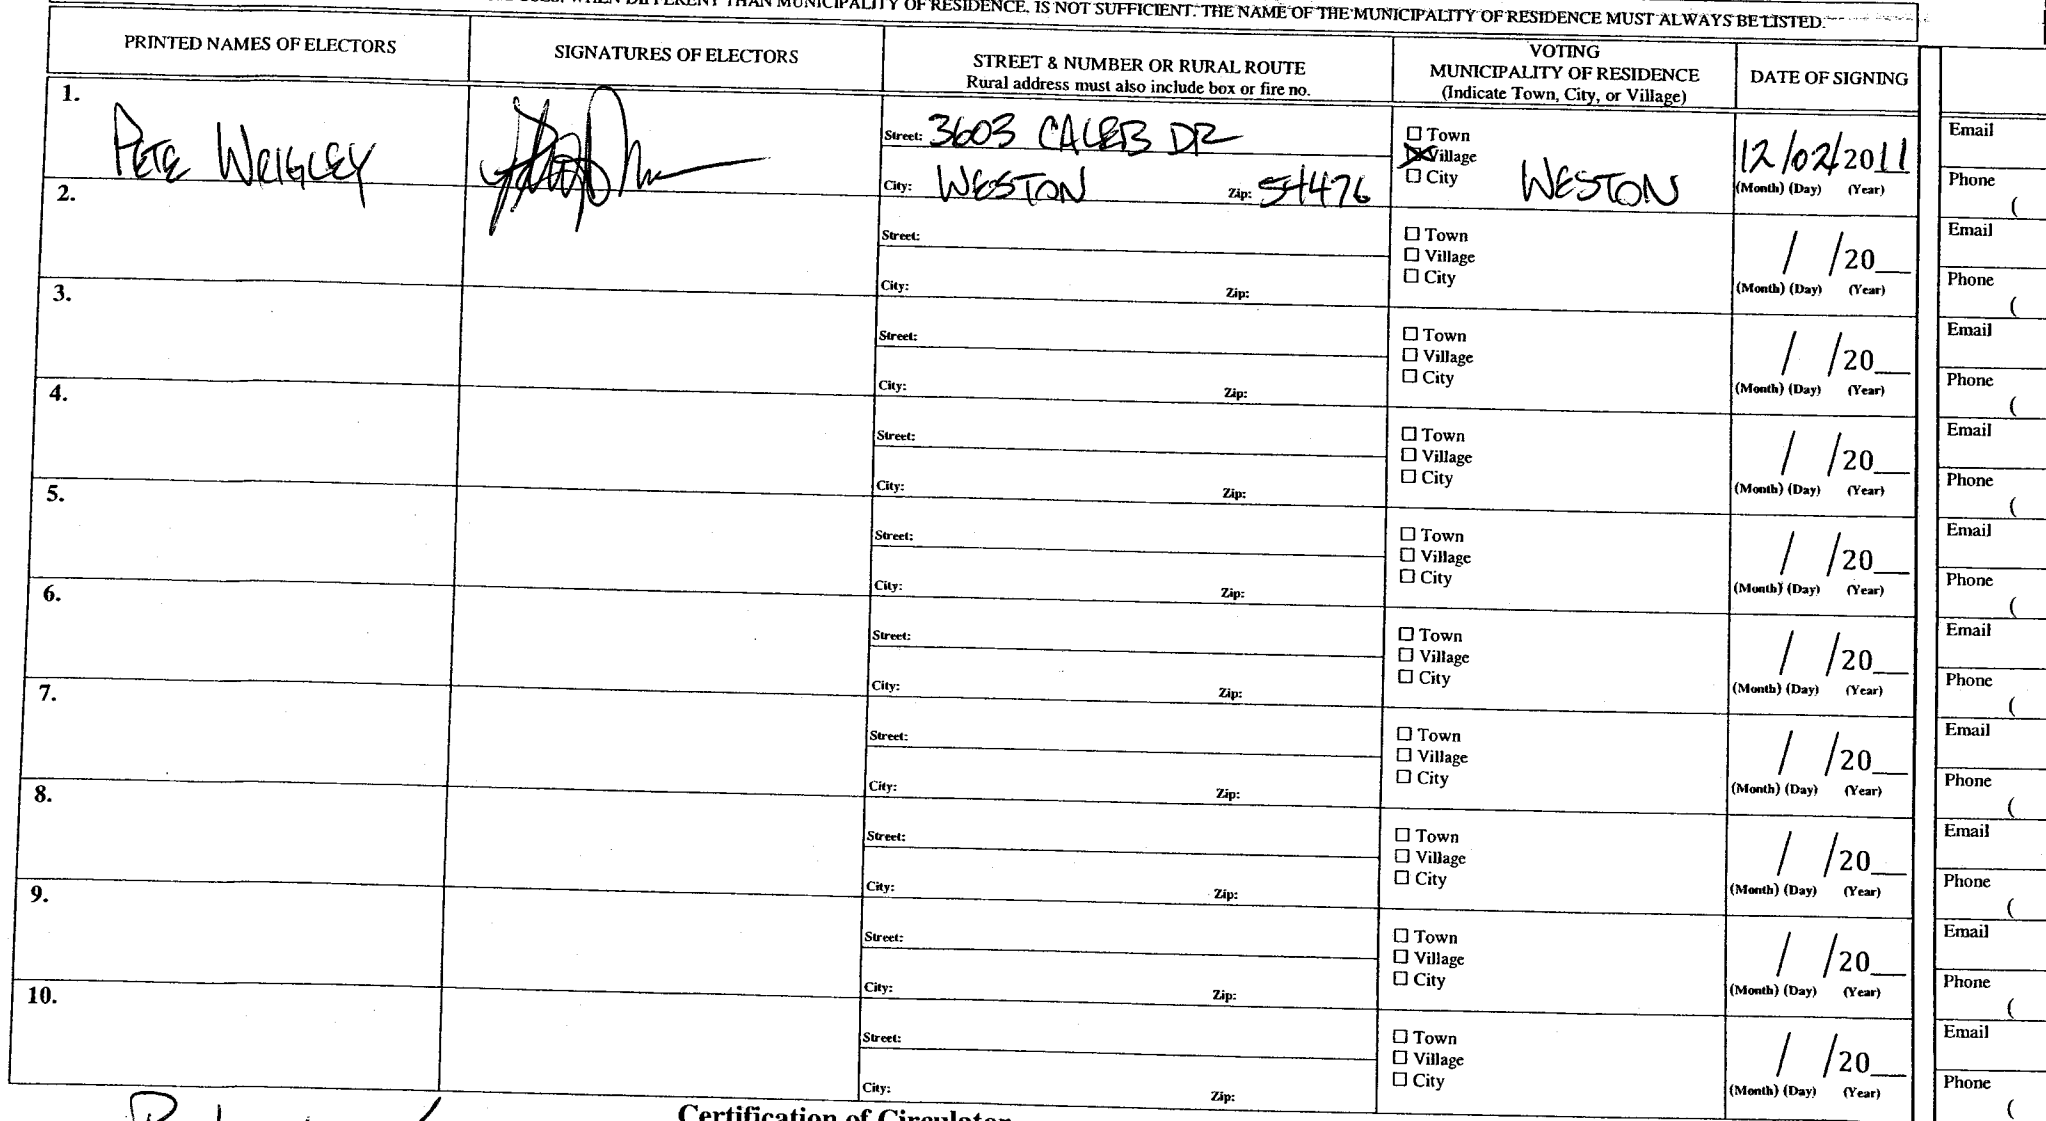 WHEN DIFFERENT THAN MUNICIPALITY OF RESIDENCE, IS NOT SUFFICIENT. THE NAME OF THE MUNICIPALITY OF RESIDENCE MUST ALWAYS BE LISTED.
PRINTED NAMES OF ELECTORS
SIGNATURES OF ELECTORS
STREET & NUMBER OR RURAL ROUTE
Rural address must also include box or fire no.
VOTING
MUNICIPALITY OF RESIDENCE
(Indicate Town, City, or Village)
DATE OF SIGNING
1.
PETE WRIGLEY
Street: 3603 CALEB DR
City: WESTON Zip: 54476
Town
Village
City
WESTON
12/02/2011
(Month) (Day) (Year)
Email
Phone
(
2.
Street:
City: Zip:
Town
Village
City
/ /20__
(Month) (Day) (Year)
Email
Phone
(
3.
Street:
City: Zip:
Town
Village
City
/ /20__
(Month) (Day) (Year)
Email
Phone
(
4.
Street:
City: Zip:
Town
Village
City
/ /20__
(Month) (Day) (Year)
Email
Phone
(
5.
Street:
City: Zip:
Town
Village
City
/ /20__
(Month) (Day) (Year)
Email
Phone
(
6.
Street:
City: Zip:
Town
Village
City
/ /20__
(Month) (Day) (Year)
Email
Phone
(
7.
Street:
City: Zip:
Town
Village
City
/ /20__
(Month) (Day) (Year)
Email
Phone
(
8.
Street:
City: Zip:
Town
Village
City
/ /20__
(Month) (Day) (Year)
Email
Phone
(
9.
Street:
City: Zip:
Town
Village
City
/ /20__
(Month) (Day) (Year)
Email
Phone
(
10.
Street:
City: Zip:
Town
Village
City
/ /20__
(Month) (Day) (Year)
Email
Phone
(
Certification of Circulator